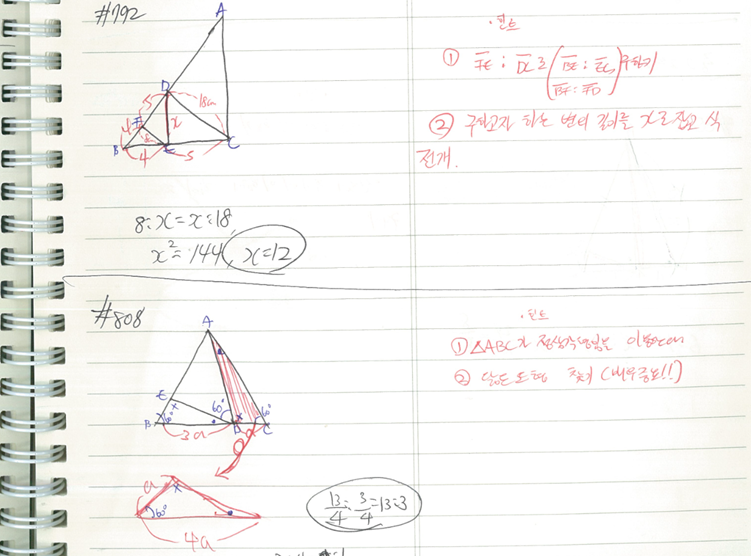 #792
A
D
5
18cm
F
4
x
B
4
E
5
C
8:x=x:18,
x²=144, x=12
·힌트
① FE : DC로 (BE : EC, BF : FD) 구하기
② 구하고자 하는 변의 길이를 x로 잡고 식
전개.
#808
A
E
x
60°
B
60°
3a
D
x
60°
C
a
x
60°
4a
13/4 : 3/4 = 13:3
·힌트
① △ABC가 정삼각형임을
② 닮은 도형 찾기 (매우중요!!)